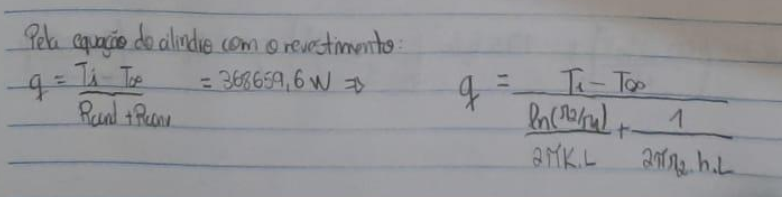 Pela equação do cilindro com o revestimento:
q = (Ti - T∞)/(Rcond + Rconv) = 368659,6 W ⇒ q = (Ti - T∞)/(ln(r2/r1)/(2πK.L) + 1/(2πr2.h.L))